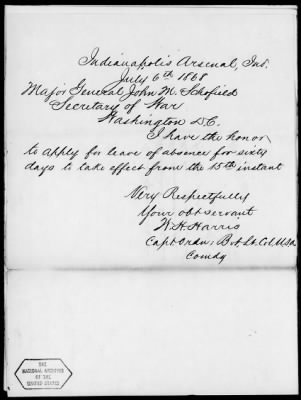 Indianapolis Arsenal, Ind.
July 6th 1868
Major General John M. Schofield
Secretary of War
Washington D.C.
I have the honor
to apply for leave of absence for sixty
days to take effect from the 15th instant
Very Respectfully
Your obt servant
W. H. Harris
Capt. Ordn: Bvt. Lt. Col. U.S.A.
Comdg
THE
NATIONAL ARCHIVES
OF THE
UNITED STATES